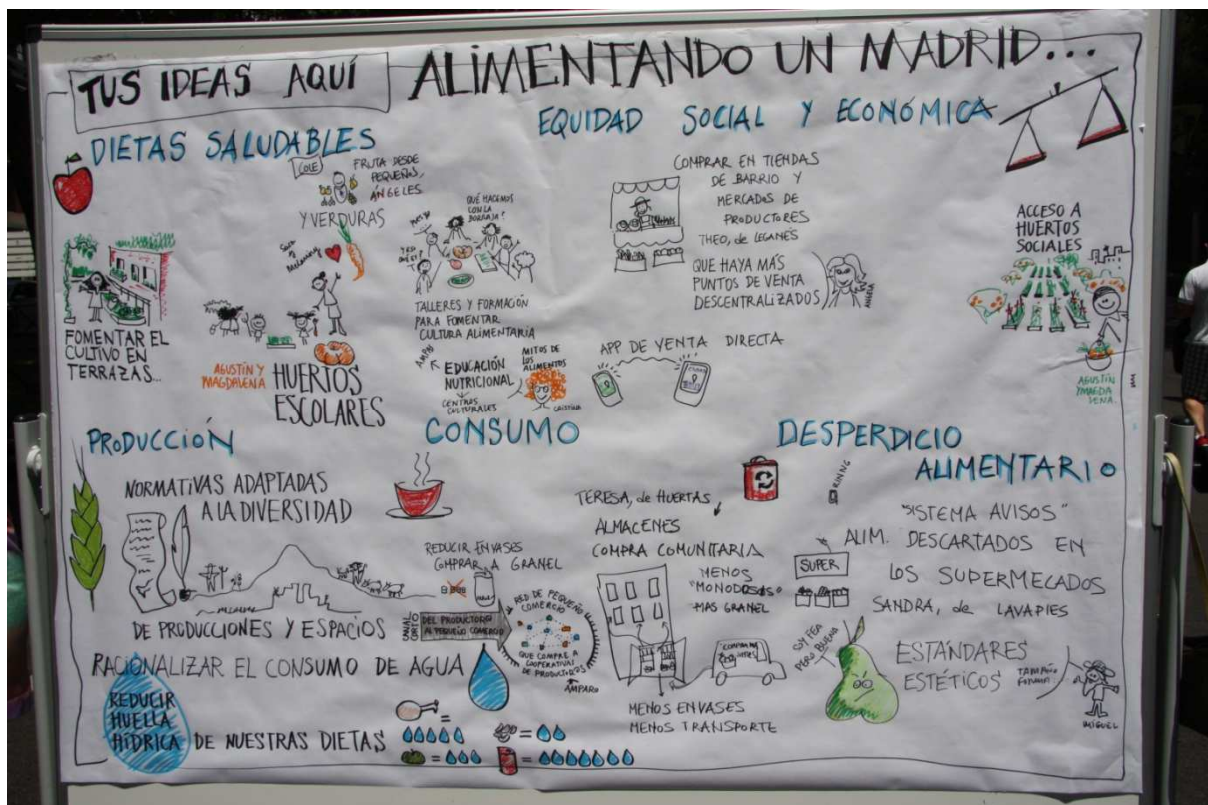 TUS IDEAS AQUÍ
ALIMENTANDO UN MADRID...
DIETAS SALUDABLES
COLE
FRUTA DESDE
PEQUEÑOS,
ÁNGELES
Y VERDURAS
FOMENTAR EL
CULTIVO EN
TERRAZAS...
AGUSTÍN Y
MAGDALENA
HUERTOS
ESCOLARES
QUÉ HACEMOS
CON LA
BORRAJA?
TALLERES Y FORMACIÓN
PARA FOMENTAR
CULTURA ALIMENTARIA
AMPAS
EDUCACIÓN
NUTRICIONAL
CENTROS
CULTURALES
MITOS DE
LOS
ALIMENTOS
CRISTINA
EQUIDAD SOCIAL Y ECONÓMICA
COMPRAR EN TIENDAS
DE BARRIO Y
MERCADOS DE
PRODUCTORES
THEO, de LEGANÉS
QUE HAYA MÁS
PUNTOS DE VENTA
DESCENTRALIZADOS
APP DE VENTA DIRECTA
ACCESO A
HUERTOS
SOCIALES
AGUSTÍN
Y MAGDA
LENA
PRODUCCIÓN
NORMATIVAS ADAPTADAS
A LA DIVERSIDAD
DE PRODUCCIONES Y ESPACIOS
RACIONALIZAR EL CONSUMO DE AGUA
REDUCIR
HUELLA
HÍDRICA
DE NUESTRAS DIETAS
=
=
=
=
CONSUMO
REDUCIR ENVASES
COMPRAR A GRANEL
CANAL
CORTO
DEL PRODUCTOR
AL PEQUEÑO COMERCIO
RED DE PEQUEÑO
COMERCIO
QUE COMPRE A
COOPERATIVAS
DE PRODUCTORES
AMPARO
TERESA, de HUERTAS
ALMACENES
COMPRA COMUNITARIA
MENOS
"MONODOSIS"
MAS GRANEL
MENOS ENVASES
MENOS TRANSPORTE
DESPERDICIO
ALIMENTARIO
RINING
"SISTEMA AVISOS"
ALIM. DESCARTADOS EN
SUPER
LOS SUPERMECADOS
SANDRA, de LAVAPIES
SOY FEA
PERO BUENA
ESTÁNDARES
ESTÉTICOS
TAMAÑO
FORMA
MIGUEL